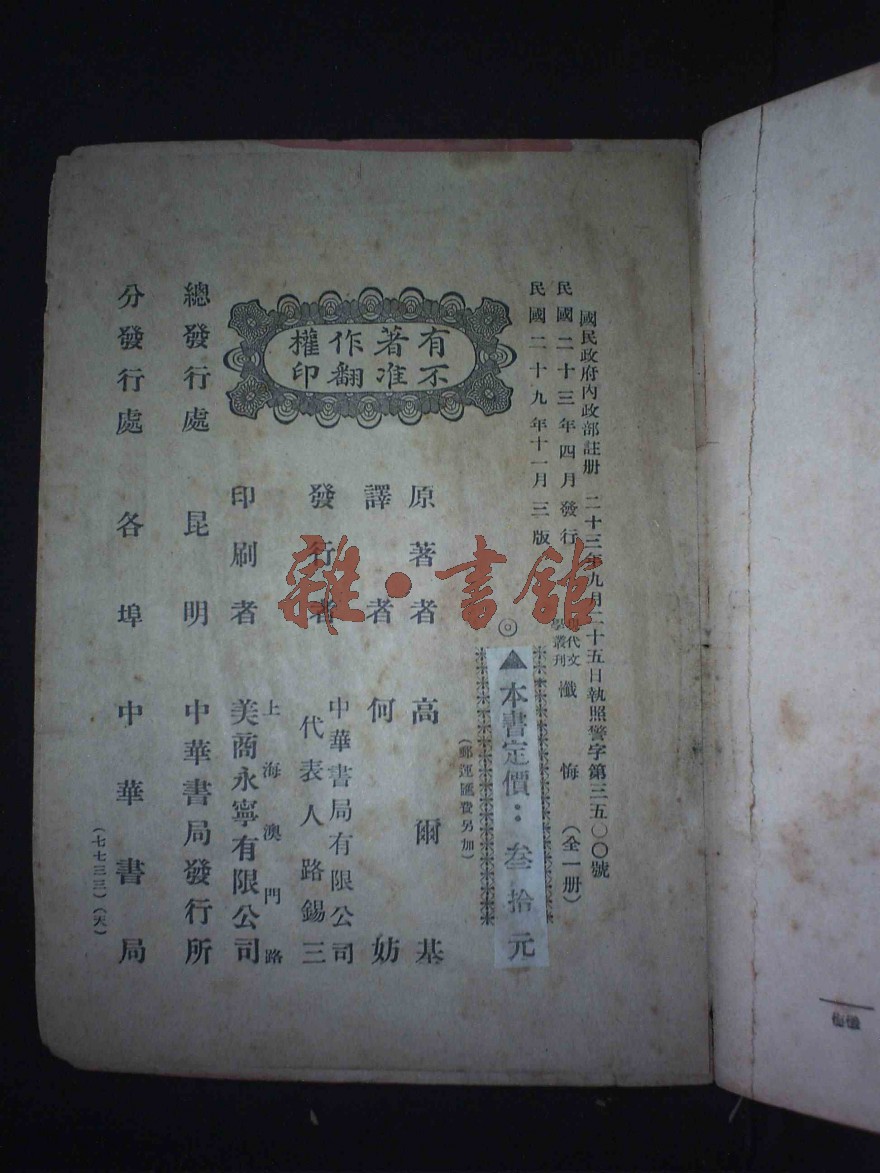 國民政府內政部註册 二十三年九月二十五日執照警字第三五〇〇號
民國二十三年四月發行
民國二十九年十一月三版
現代文學叢刊 懺悔（全一册）
◎
▲本書定價：叁拾元
（郵運匯費另加）
有著作權
不准翻印
原著者 高爾基
譯者 何妨
發行者 中華書局有限公司
代表人路錫三
印刷者 上海澳門路
美商永寧有限公司
總發行處 昆明 中華書局發行所
分發行處 各埠 中華書局
（七七三三）（天）
雜·書館
懺悔